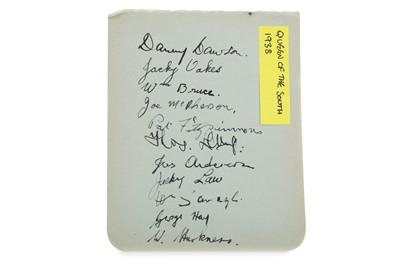 Danny Dawson.
Jacky Oakes
Wm Bruce.
Joe McPherson.
Pat Fitzsimmons
Thos.
Jas Anderson
Jacky Law
George Hay
W. Harkness.
QUEEN OF THE SOUTH
1938